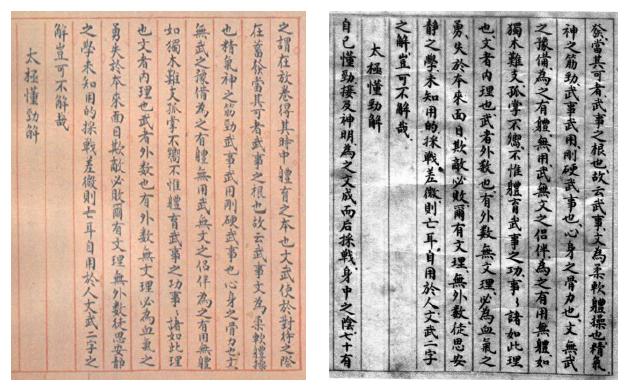 之謂在放卷得其時中體育之本也文武使於對待之際
在蓄發當其可者武事之根也故云武事文為柔軟體操
也精氣神之筋勁武事武用剛硬武事也心身之骨力也文
無武之豫備為之有體無用武無文之侶伴為之有用無體
如獨木難支孤掌不響不惟體育武事之功事〻諸如此理
也文者內理也武者外數也有外數無文理必為血氣之
勇失於本來面目欺敵必敗爾有文理無外數徒思安靜
之學未知用的採戰差微則亡耳自用於人文武二字之
解豈可不解哉
太極懂勁解
發當其可者武事之根也故云武事文為柔軟體操也精氣
神之筋勁武事武用剛硬武事也心身之骨力也文無武
之豫備為之有體無用武無文之侶伴為之有用無體如
獨木難支孤掌不響不惟體育武事之功事〻諸如此理
也文者內理也武者外數也有外數無文理必為血氣之
勇失於本來面目欺敵必敗爾有文理無外數徒思安
靜之學未知用的採戰差微則亡耳自用於人文武二字
之解豈可不解哉
太極懂勁解
自己懂勁接及神明為之文成而后採戰身中之陰七十有